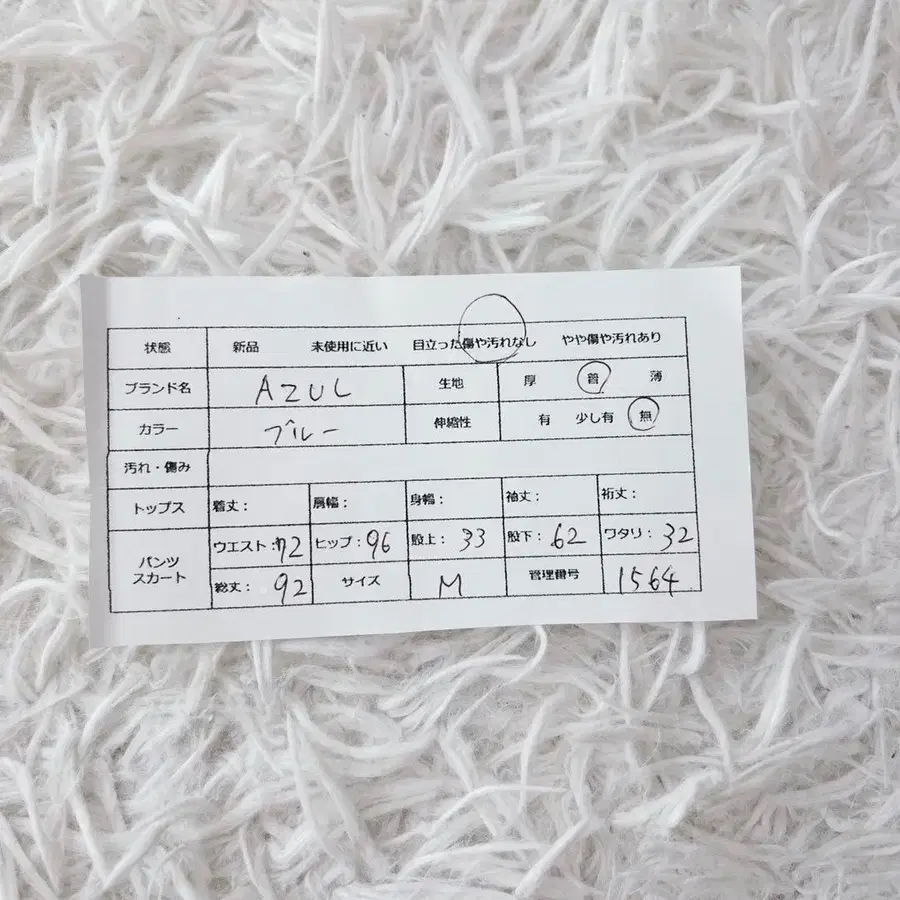 状態 新品 未使用に近い 目立った傷や汚れなし やや傷や汚れあり
ブランド名 AZUL 生地 厚 普 薄
カラー ブルー 伸縮性 有 少し有 無
汚れ・傷み
トップス 着丈： 肩幅： 身幅： 袖丈： 裄丈：
パンツ スカート ウエスト：72 ヒップ：96 股上：33 股下：62 ワタリ：32
総丈：92 サイズ M 管理番号 1564